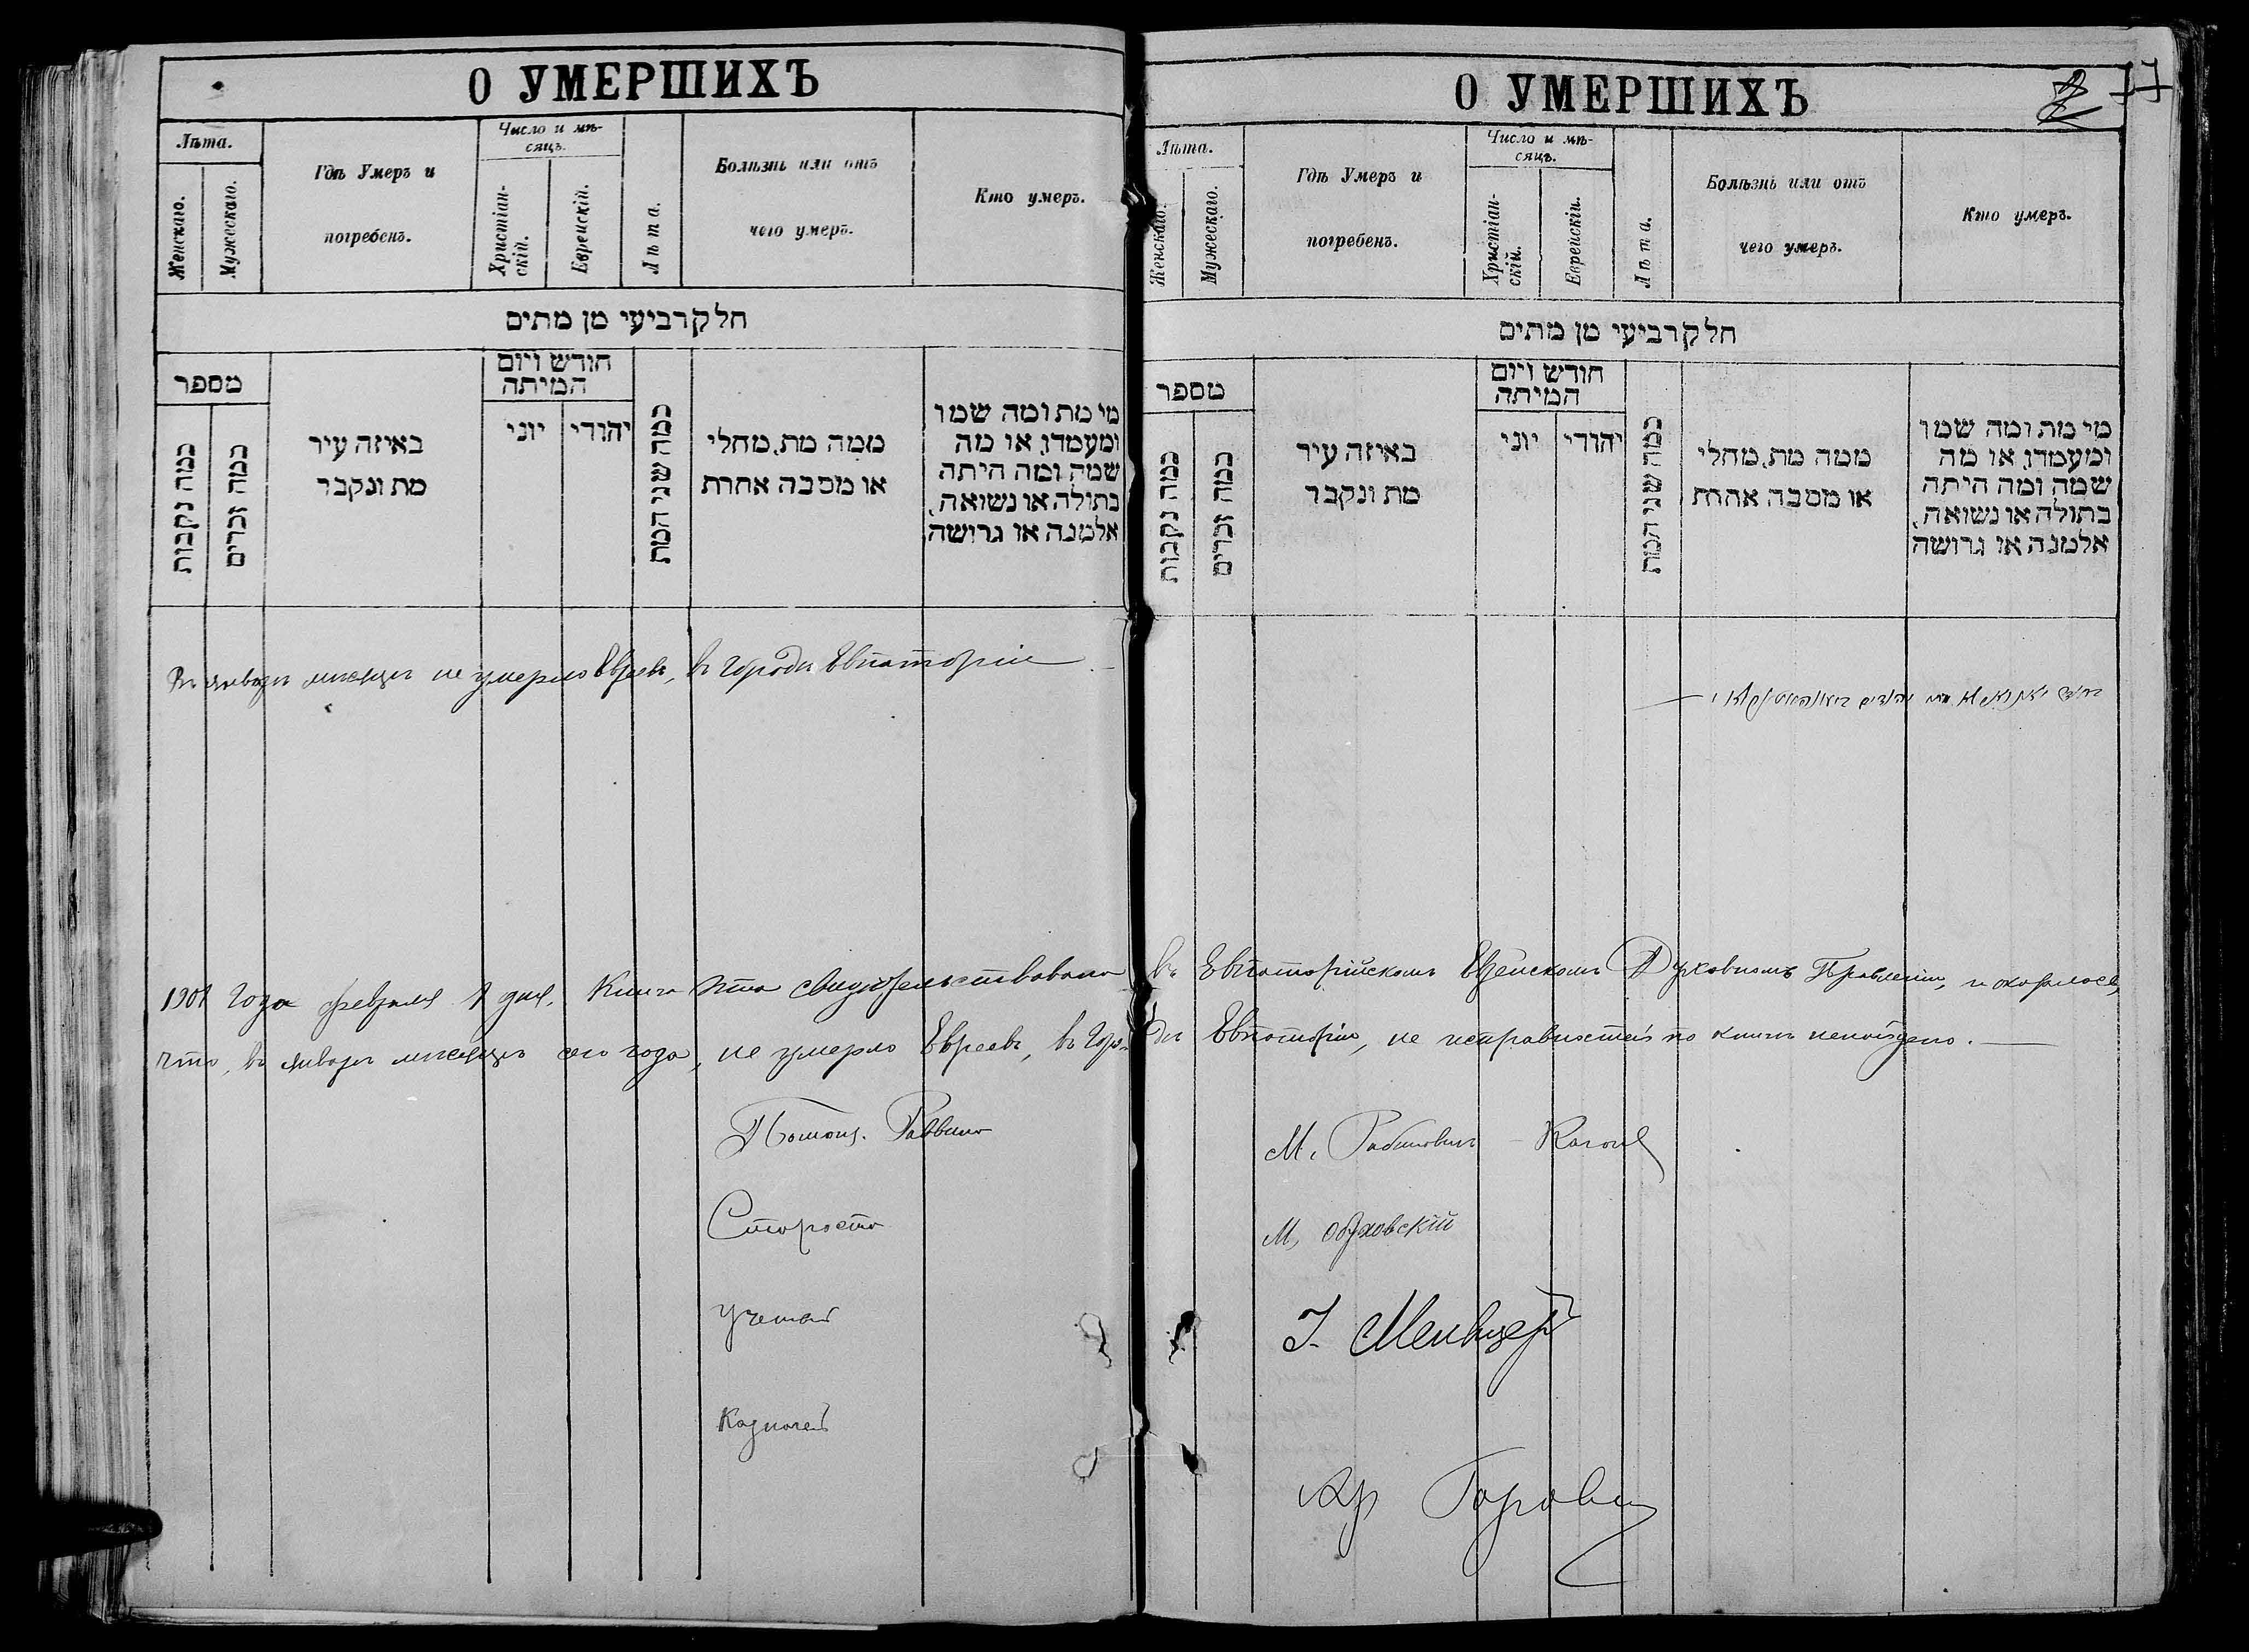 О УМЕРШИХЪ
Лѣта.
Женскаго.
Мужескаго.
Гдѣ Умеръ и
погребенъ.
Число и мѣ-
сяцъ.
Христіан-
скій.
Еврейскій.
Лѣта.
Болѣзнь или отъ
чего умеръ.
Кто умеръ.
חלק רביעי מן מתים
מספר
כמה נקבות
כמה זכרים
באיזה עיר
מת ונקבר
חודש ויום
המיתה
יוני
יהודי
כמה שני המת
ממה מת, מחלי
או מסבה אחרת
מי מת ומה שמו
ומעמדו, או מה
שמה ומה היתה
בתולה או נשואה,
אלמנה או גרושה
Въ январѣ мѣсяцѣ не умерло Евреевъ, въ городѣ Евпаторіи
О УМЕРШИХЪ
Лѣта.
Женскаго.
Мужескаго.
Гдѣ Умеръ и
погребенъ.
Число и мѣ-
сяцъ.
Христіан-
скій.
Еврейскій.
Лѣта.
Болѣзнь или отъ
чего умеръ.
Кто умеръ.
חלק רביעי מן מתים
מספר
כמה נקבות
כמה זכרים
באיזה עיר
מת ונקבר
חודש ויום
המיתה
יוני
יהודי
כמה שני המת
ממה מת, מחלי
או מסבה אחרת
מי מת ומה שמו
ומעמדו, או מה
שמה ומה היתה
בתולה או נשואה,
אלמנה או גרושה
1901 года февраля 1 дня. Книга эта свидѣтельствована въ Евпаторійскомъ Еврейскомъ Духовномъ Правленіи, и оказалось,
что, въ январѣ мѣсяцѣ сего года, не умерло Евреевъ, въ городѣ Евпаторіи, не исправностей по книгѣ ненайдено.
Помощ. Раввина М. Рабиновичъ - Каганъ
Староста М. Обуховскій
Ученый І. Меивцеръ
Казначей
Ар Горовиц